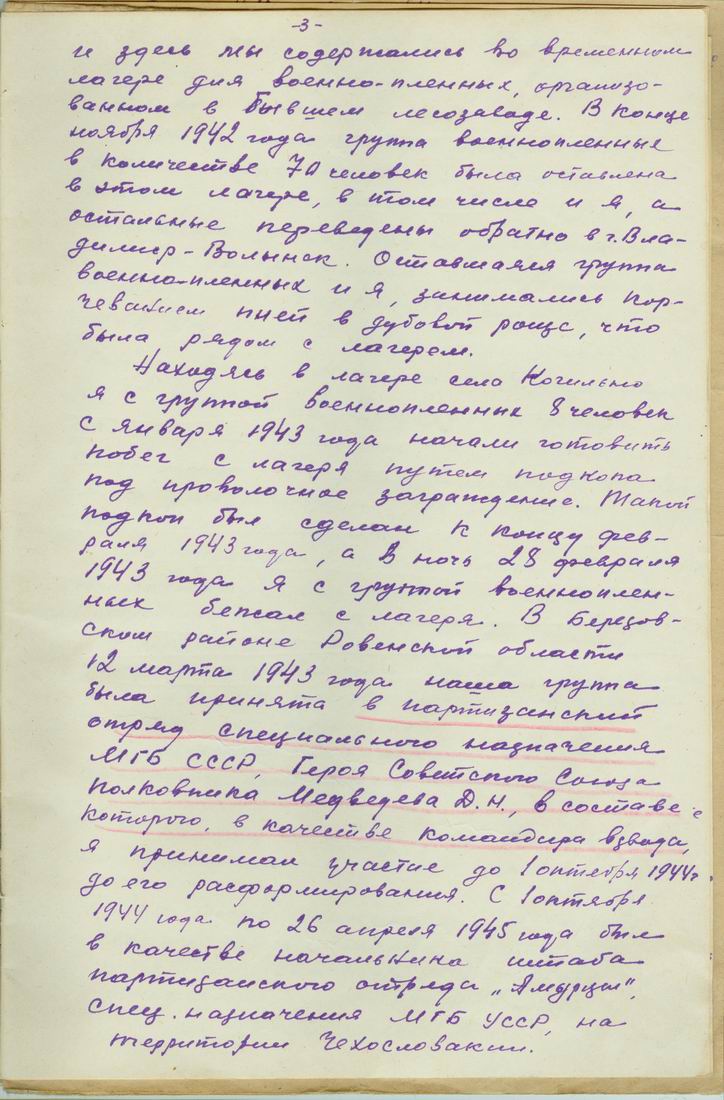 -3-
и здесь мы содержались во временном
лагере для военно-пленных, организо-
ванном в бывшем лесозаводе. В конце
ноября 1942 года группа военнопленные
в количестве 70 человек была оставлена
в этом лагере, в том числе и я, а
остальные переведены обратно в г. Вла-
димир-Волынск. Оставшаяся группа
военно-пленных и я, занимались кор-
чеванием пней в дубовой роще, что
была рядом с лагерем.
Находясь в лагере село Когильно
я с группой военнопленных 8 человек
с января 1943 года начали готовить
побег с лагеря путем подкопа
под проволочное заграждение. Такой
подкоп был сделан к концу фев-
раля 1943 года, а в ночь 28 февраля
1943 года я с группой военноплен-
ных бежал с лагеря. В Березов-
ском районе Ровенской области
12 марта 1943 года наша группа
была принята в партизанский
отряд специального назначения
МГБ СССР, Героя Советского Союза
полковника Медведева Д.Н., в составе
которого, в качестве командира взвода,
я принимал участие до 1 октября 1944 г.
до его расформирования. С 1 октября
1944 года по 26 апреля 1945 года был
в качестве начальника штаба
партизанского отряда „Амурцы",
спец. назначения МГБ УССР, на
территории Чехословакии.